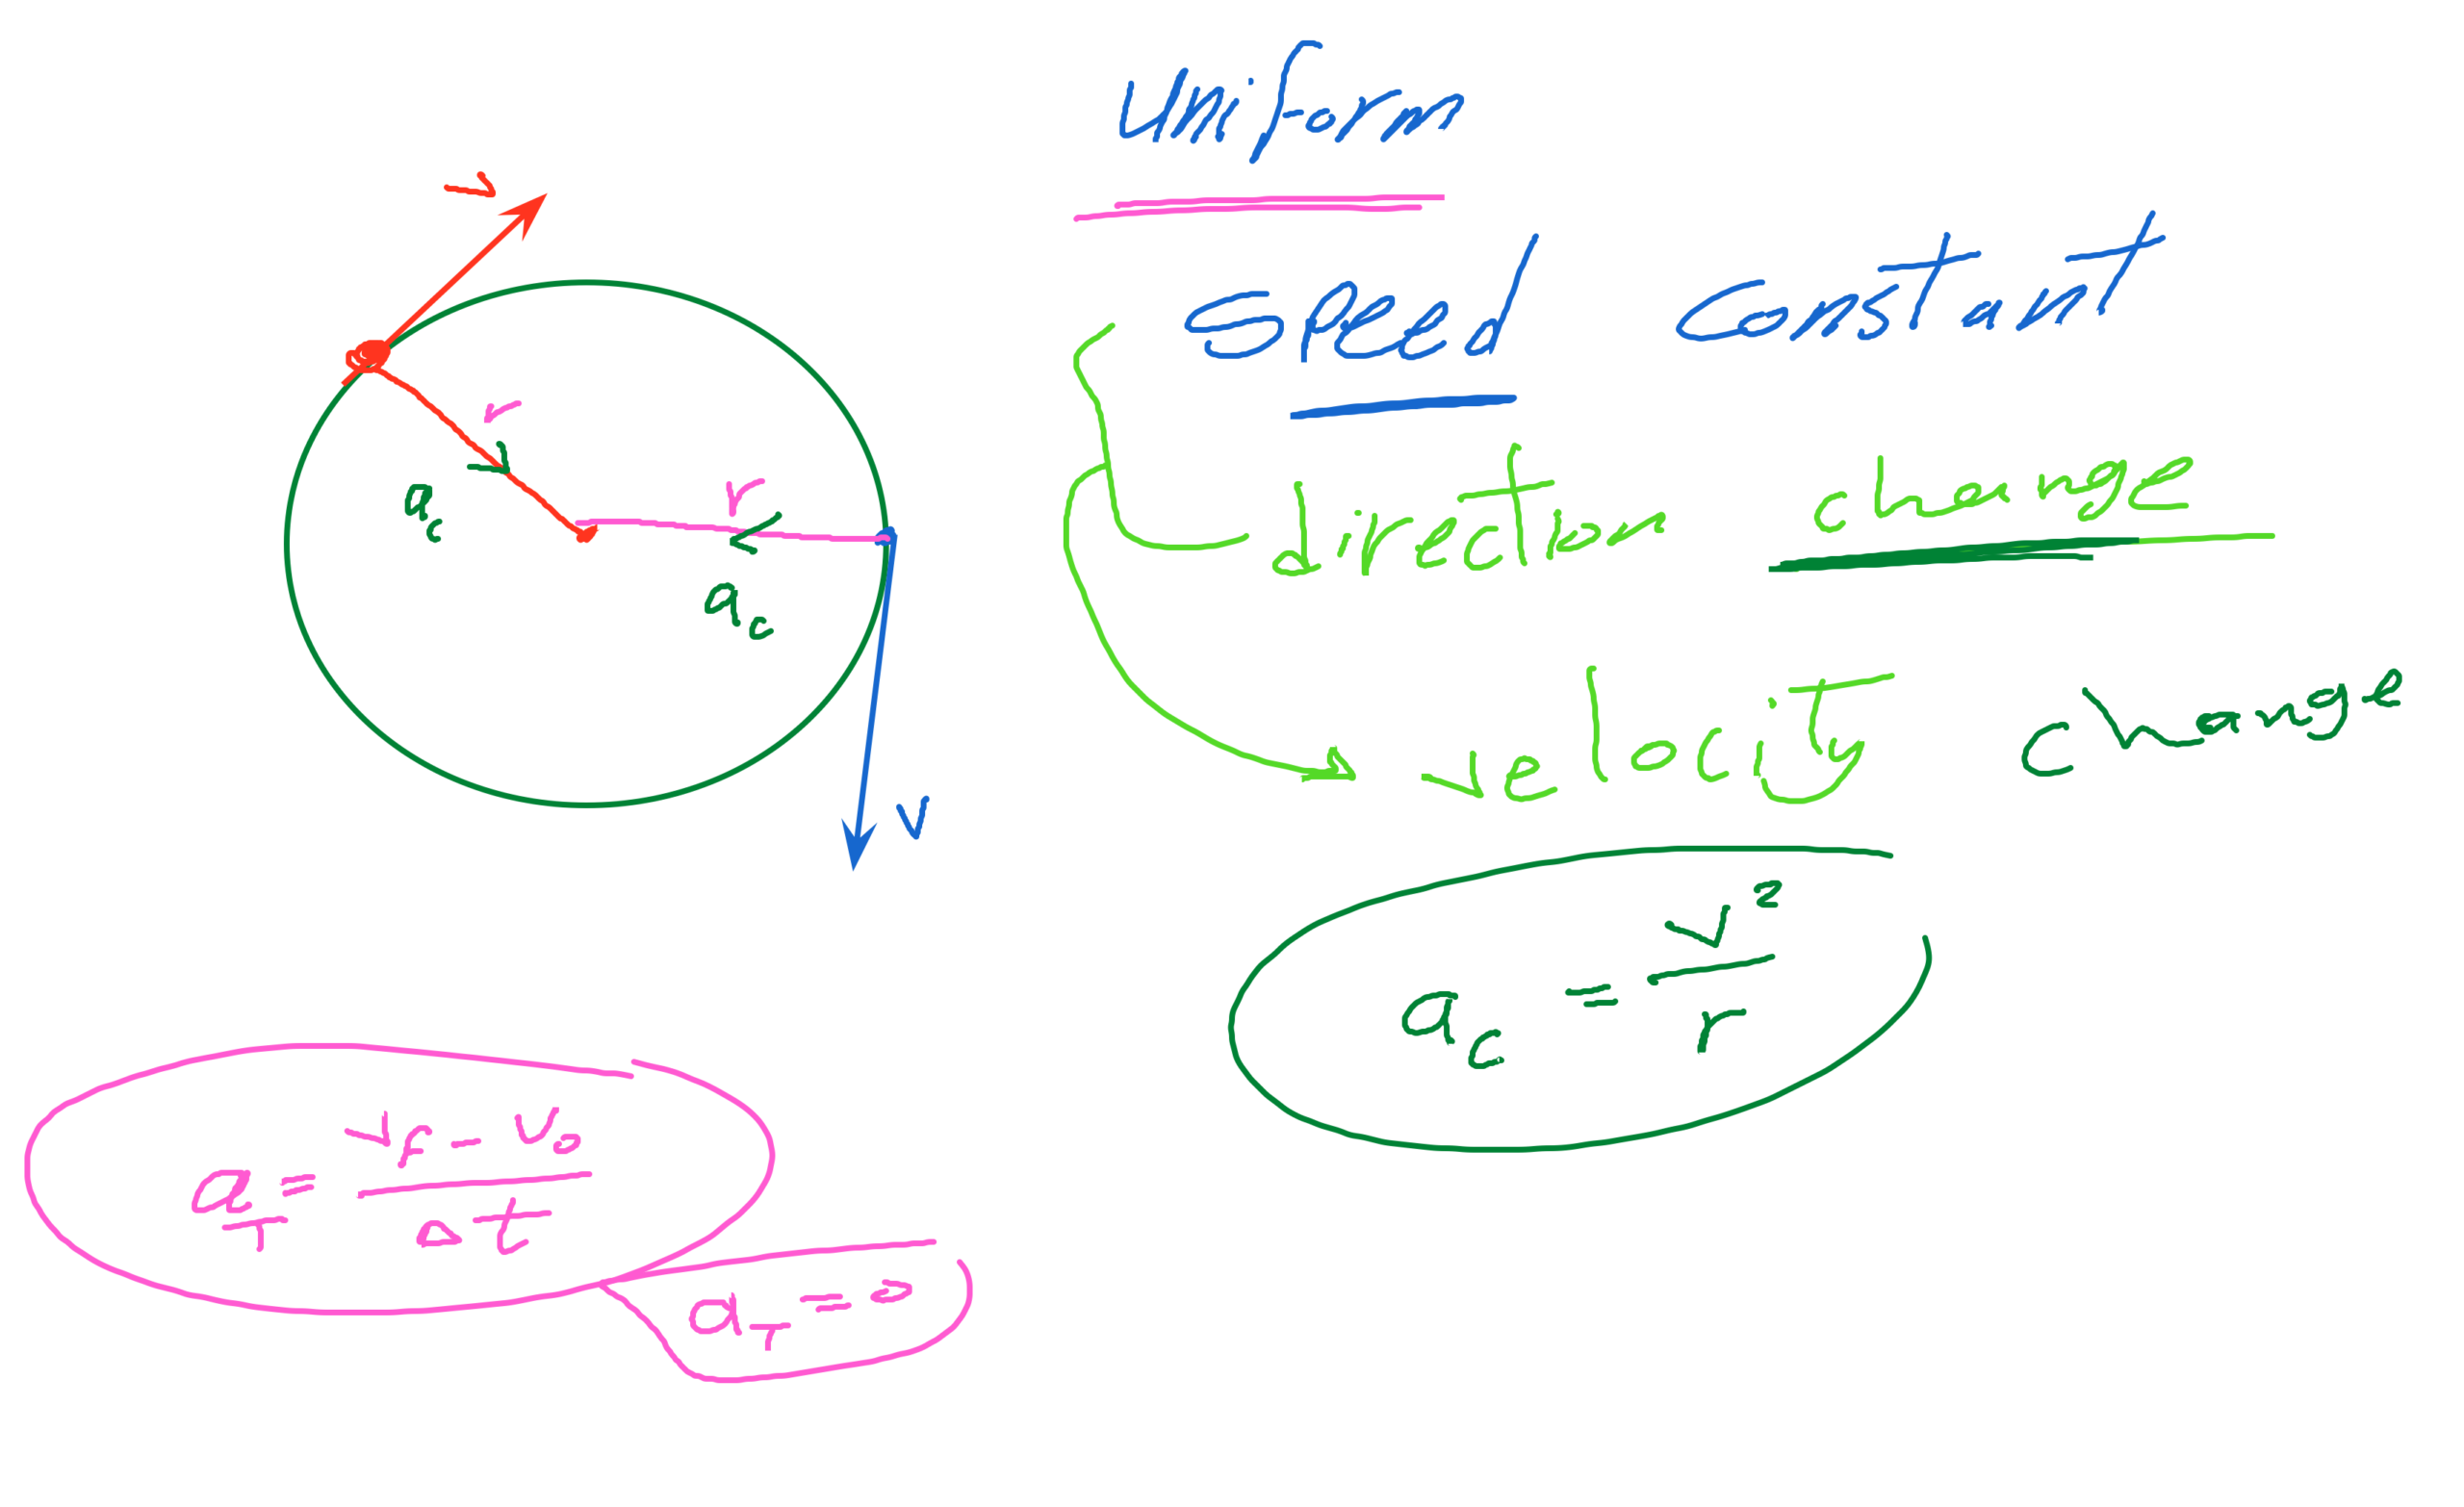 Uniform
speed constant
direction change
velocity change
v
r
a_c
r
a_c
v
a_c = v²/r
a_T = (v_f - v_0)/Δt
a_T = 0